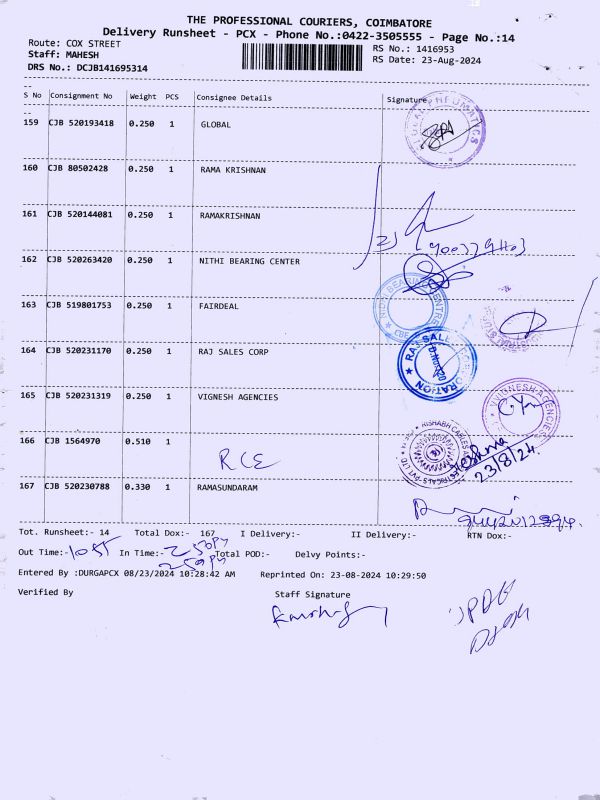 THE PROFESSIONAL COURIERS, COIMBATORE
Delivery Runsheet - PCX - Phone No.:0422-3505555 - Page No.:14
Route: COX STREET RS No.: 1416953
Staff: MAHESH RS Date: 23-Aug-2024
DRS No.: DCJB141695314
S No Consignment No Weight PCS Consignee Details Signature
159 CJB 520193418 0.250 1 GLOBAL
160 CJB 80502428 0.250 1 RAMA KRISHNAN
161 CJB 520144081 0.250 1 RAMAKRISHNAN
162 CJB 520263420 0.250 1 NITHI BEARING CENTER
163 CJB 519801753 0.250 1 FAIRDEAL
164 CJB 520231170 0.250 1 RAJ SALES CORP
165 CJB 520231319 0.250 1 VIGNESH AGENCIES
166 CJB 1564970 0.510 1
RCE
23/8/24.
167 CJB 520230788 0.330 1 RAMASUNDARAM
Tot. Runsheet:- 14 Total Dox:- 167 I Delivery:- II Delivery:- RTN Dox:-
Out Time:- 1055 In Time:- Total POD:- Delvy Points:-
Entered By :DURGAPCX 08/23/2024 10:28:42 AM Reprinted On: 23-08-2024 10:29:50
Verified By Staff Signature